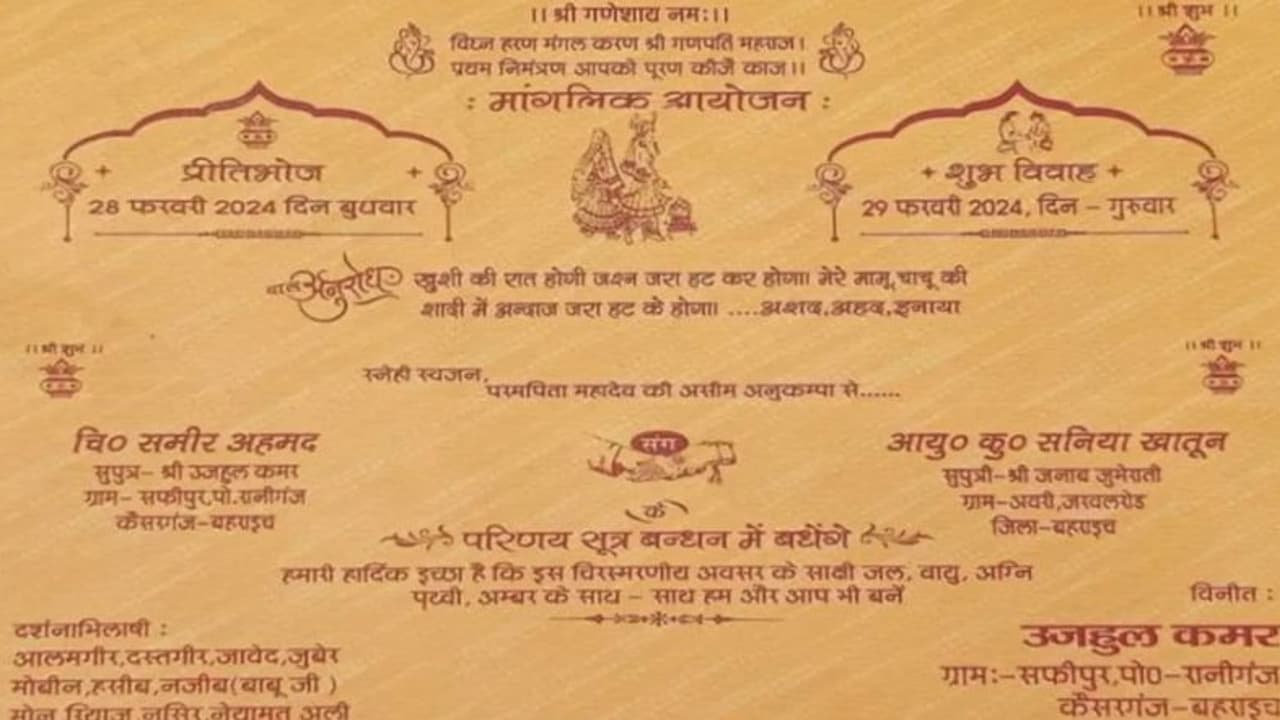 ।। श्री गणेशाय नमः।।
।। श्री शुभ ।।
विघ्न हरण मंगल करण श्री गणपति महराज।
प्रथम निमंत्रण आपको पूरण कीजै काज।।
: मांगलिक आयोजन :
प्रीतिभोज
28 फरवरी 2024 दिन बुधवार
शुभ विवाह
29 फरवरी 2024, दिन - गुरुवार
बाल अनुरोध
खुशी की रात होगी जश्न जरा हट कर होगा। मेरे मामू,चाचू की
शादी में अन्दाज जरा हट के होगा। ....अशद,अहद,इनाया
।। श्री शुभ ।।
।। श्री शुभ ।।
स्नेही स्वजन,
परमपिता महादेव की असीम अनुकम्पा से......
चि० समीर अहमद
सुपुत्र- श्री उजहुल कमर
ग्राम- सफीपुर,पो.रानीगंज
कैसरगंज-बहराइच
संग
आयु० कु० सनिया खातून
सुपुत्री-श्री जनाब जुमेराती
ग्राम-अवरी,जरवलरोड
जिला-बहराइच
के
परिणय सूत्र बन्धन में बधेंगे
हमारी हार्दिक इच्छा है कि इस चिरस्मरणीय अवसर के साक्षी जल, वायु, अग्नि
पृथ्वी, अम्बर के साथ - साथ हम और आप भी बनें
दर्शनाभिलाषी :
आलमगीर,दस्तगीर,जावेद,जुबेर
मोबीन,हसीब,नजीब(बाबू जी )
मोनू,रियाज,नसिर,नेयामत अली
विनीत :
उजहुल कमर
ग्रामः-सफीपुर,पो०-रानीगंज
कैसरगंज-बहराइच